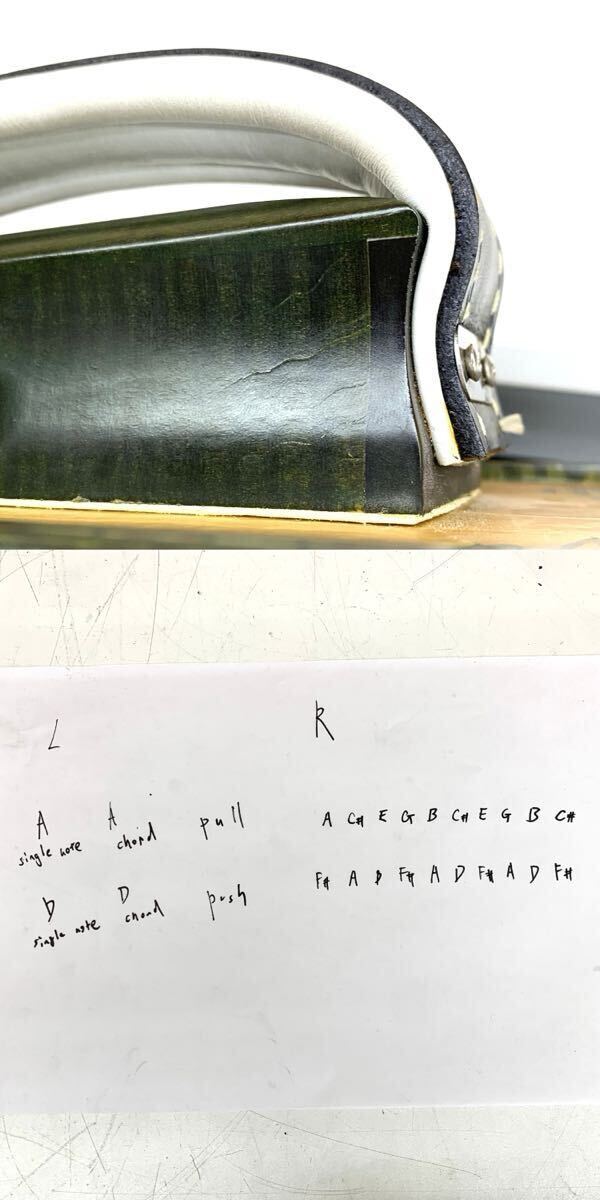 L R
A A pull A C# E G B C# E G B C#
single note chord
D D push F# A D F# A D F# A D F#
single note chord